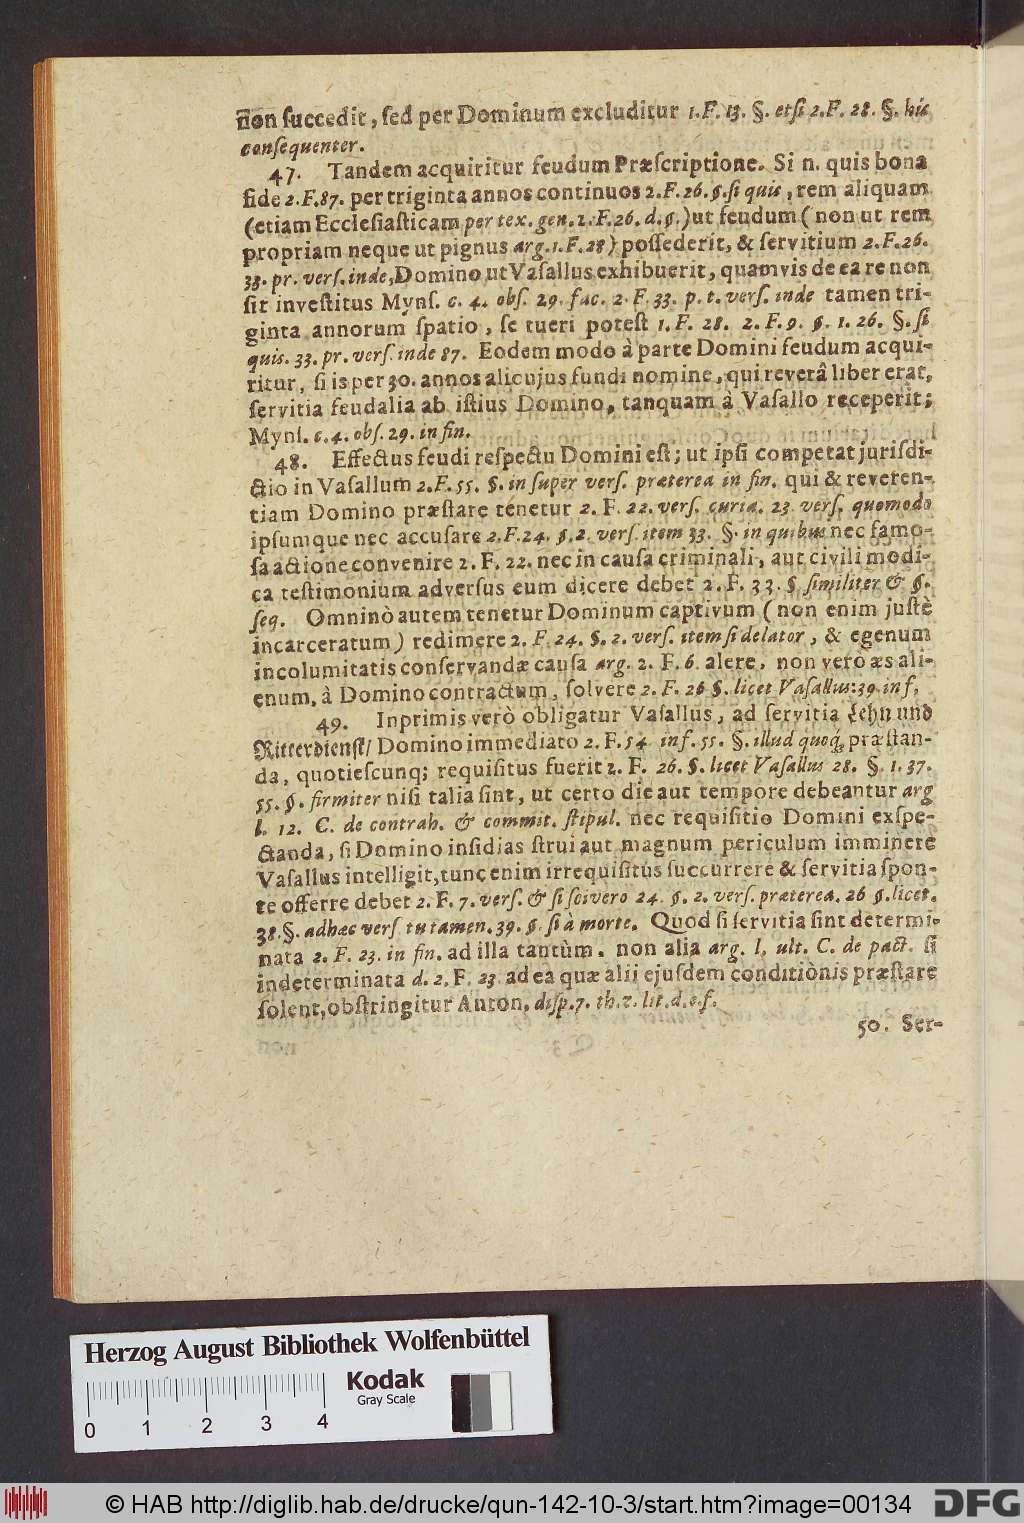 non succedit, sed per Dominum excluditur 1. F. 13. §. etsi 2. F. 28. §. his
consequenter.
47. Tandem acquiritur feudum Præscriptione. Si n. quis bona
fide 2. F. 87. per triginta annos continuos 2. F. 26. §. si quis, rem aliquam
(etiam Ecclesiasticam per tex. gen. 2. F. 26. d. §.) ut feudum (non ut rem
propriam neque ut pignus arg. 1. F. 28) possederit, & servitium 2. F. 26.
33. pr. vers. inde, Domino ut Vasallus exhibuerit, quamvis de ea re non
sit investitus Myns. c. 4. obs. 29. fac. 2. F. 33. p. t. vers. inde tamen tri-
ginta annorum spatio, se tueri potest 1. F. 28. 2. F. 9. §. 1. 26. §. si
quis. 33. pr. vers. inde 87. Eodem modo à parte Domini feudum acqui-
ritur, si is per 30. annos alicujus fundi nomine, qui reverâ liber erat,
servitia feudalia ab istius Domino, tanquam â Vasallo receperit;
Myns. c. 4. obs. 29. in fin.
48. Effectus feudi respectu Domini est; ut ipsi competat jurisdi-
ctio in Vasallum 2. F. 55. §. insuper vers. præterea in fin. qui & reveren-
tiam Domino præstare tenetur 2. F. 22. vers. curia. 23. vers. quomodo
ipsumque nec accusare 2. F. 24. §. 2. vers. item 33. §. in quibus nec famo-
sa actione convenire 2. F. 22. nec in causa criminali, aut civili modi-
ca testimonium adversus eum dicere debet 2. F. 33. §. similiter & §.
seq. Omninò autem tenetur Dominum captivum (non enim justè
incarceratum) redimere 2. F. 24. §. 2. vers. item si delator, & egenum
incolumitatis conservandæ causa arg. 2. F. 6. alere, non verò æs ali-
enum, à Domino contractum, solvere 2. F. 26 §. licet Vasallus. 39. inf.
49. Inprimis verò obligatur Vasallus, ad servitia Lehn und
Ritterdienst/ Domino immediato 2. F. 54. inf. 55. §. illud quoq; præstan-
da, quotiescunq; requisitus fuerit 2. F. 26. §. licet Vasallus 28. §. 1. 37.
55. §. firmiter nisi talia sint, ut certo die aut tempore debeantur arg
l. 12. C. de contrah. & commit. stipul. nec requisitio Domini exspe-
ctanda, si Domino insidias strui aut magnum periculum imminere
Vasallus intelligit, tunc enim irrequisitus succurrere & servitia spon-
te offerre debet 2. F. 7. vers. & si scivero 24. §. 2. vers. præterea. 26 §. licet.
38. §. adhæc vers. tu tamen. 39. §. si à morte. Quod si servitia sint determi-
nata 2. F. 23. in fin. ad illa tantùm, non alia arg. l. ult. C. de pact. si
indeterminata d. 2. F. 23. ad ea quæ alii ejusdem conditionis præstare
solent, obstringitur Anton. disp. 7. th. 2. lit. d. e. f.
50. Ser-
Herzog August Bibliothek Wolfenbüttel
Kodak
Gray Scale
0 1 2 3 4
© HAB http://diglib.hab.de/drucke/qun-142-10-3/start.htm?image=00134
DFG